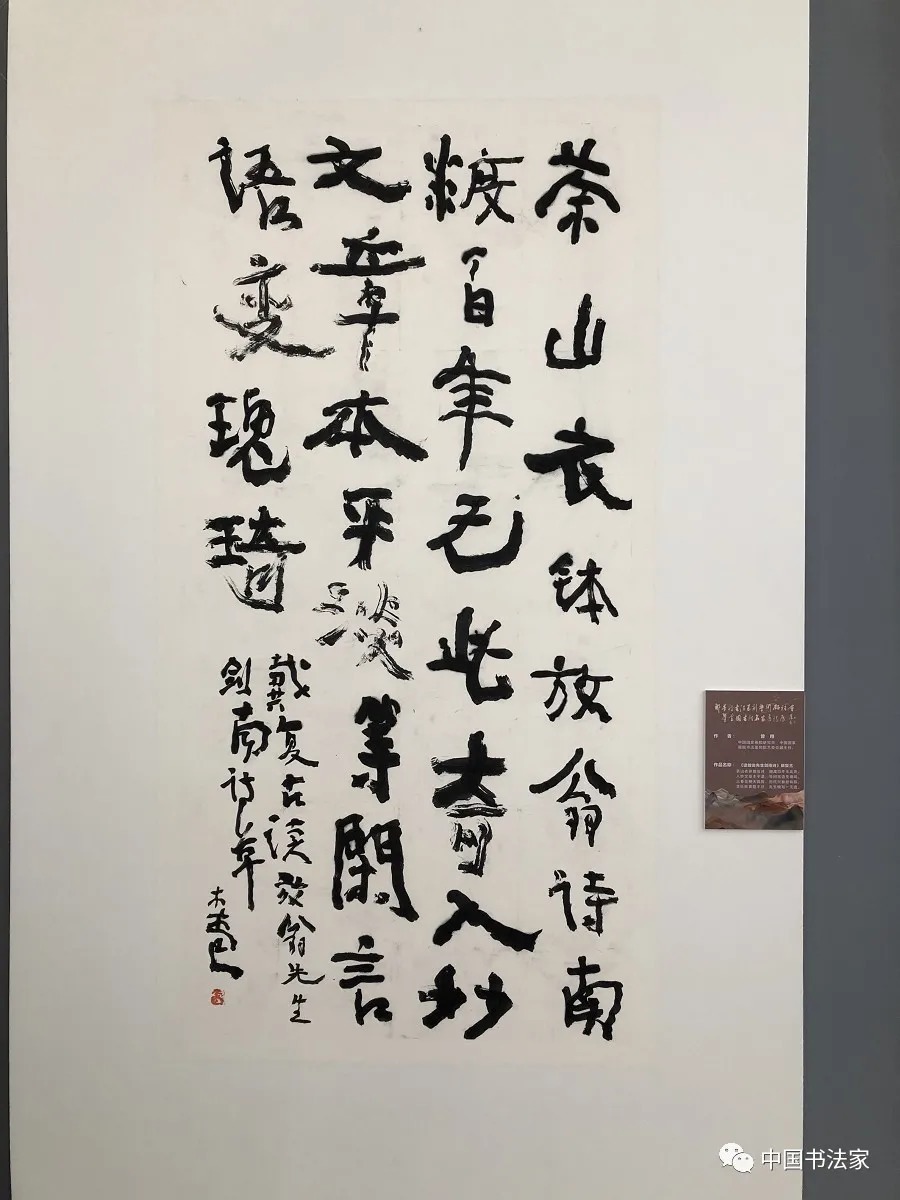 茶山衣钵放翁诗南
渡百年无此奇入妙
文章本平淡等閑言
语变瑰琦
戴复古读放翁先生
剑南诗草
作 者： 曾翔
作品名称：
中国书法家